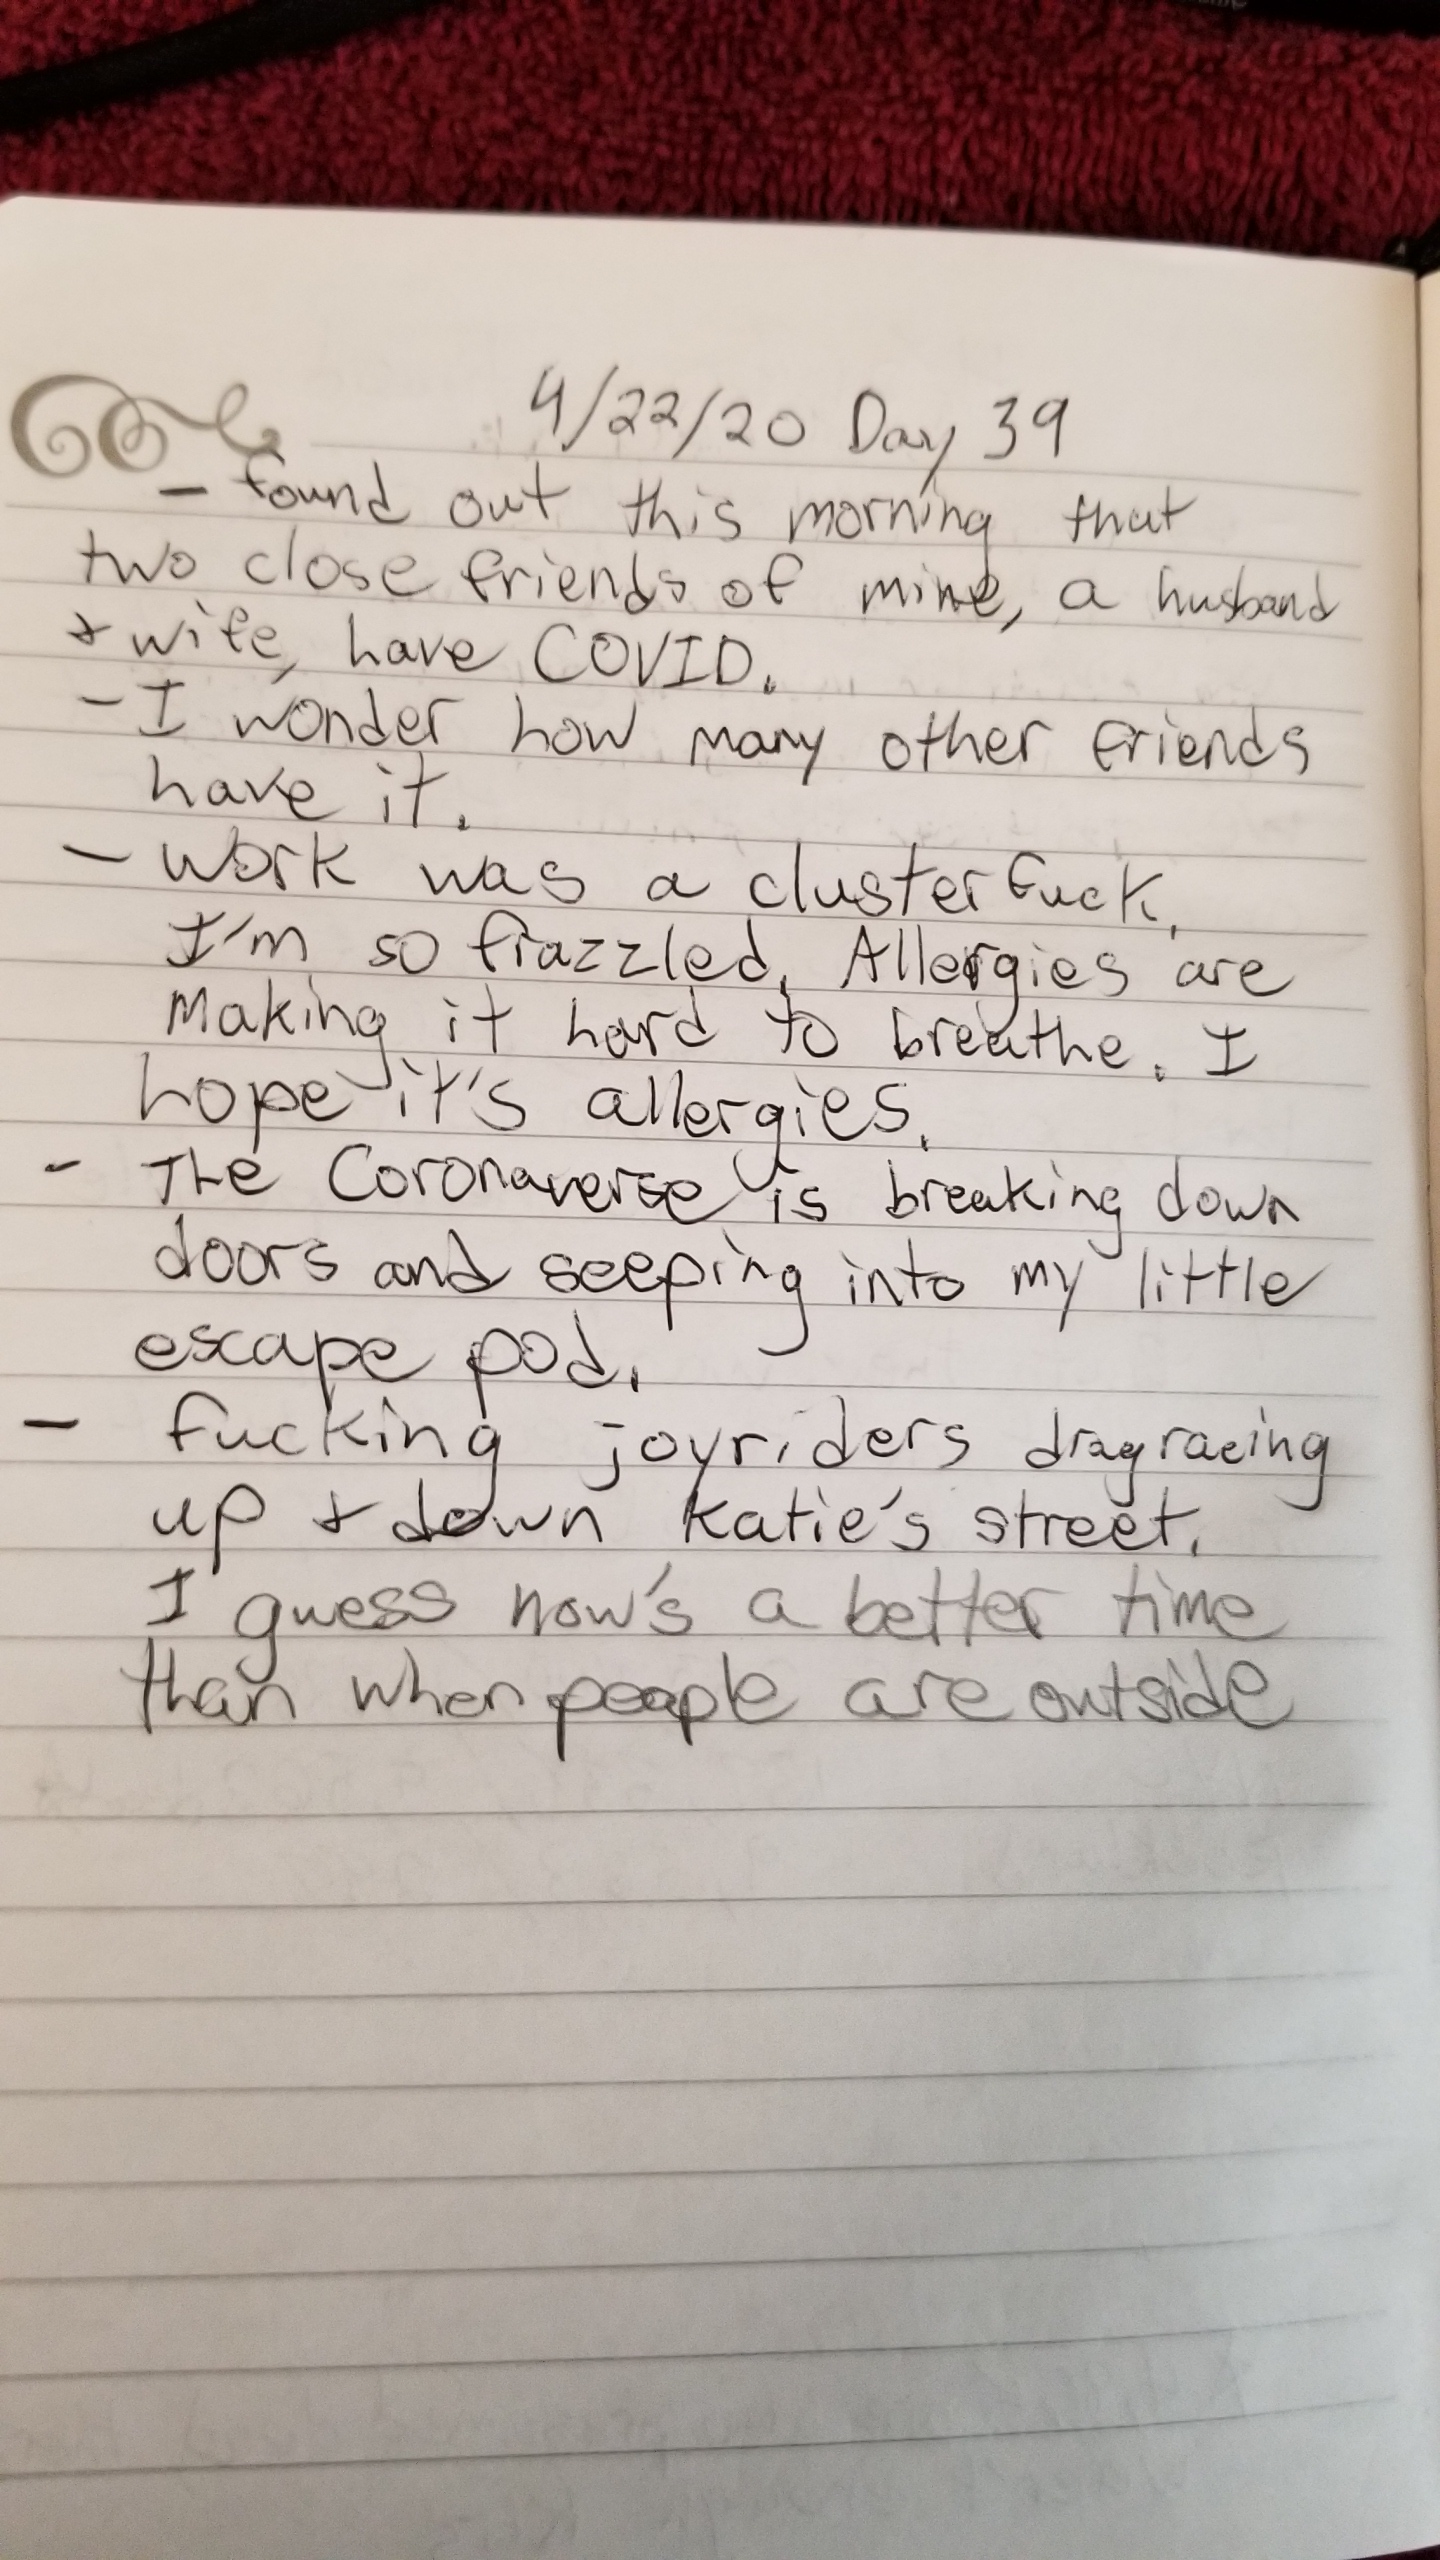 4/22/20 Day 39
- found out this morning that
two close friends of mine, a husband
& wife, have COVID.
- I wonder how many other friends
have it.
- Work was a clusterfuck.
I'm so frazzled. Allergies are
Making it hard to breathe. I
hope it's allergies.
- The Coronaverse is breaking down
doors and seeping into my little
escape pod.
- Fucking joyriders dragracing
up & down Katie's street.
I guess now's a better time
than when people are outside